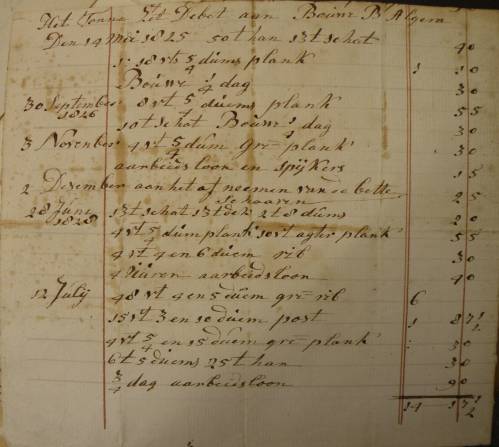 Het Tonna Zet Debet aan Bouwe Ps Algera
Den 14 Mei 1825 50 t han 13 t schot 40
1: 18 vt 5/4 dums plank 1 10
Bouwe 1/4 dag 30
30 September 1826 8 vt 5/4 duems plank 55
10 t schot Bouwe 1/4 dag 30
3 November 4 vt 5/4 dum gre plank 30
aarbeidsloon en spykers 15
2 Desember aan het of neemen van de bette 25
28 Junÿ 1828 13 t schat 13 t 2 t 8 dums 20
4 vt 5/4 dum plank 10 vt agter plank 55
4 vt 4 en 6 duem rib 30
4 Uuren aarbeidsloon 40
12 Julÿ 48 vt 4 en 5 duem gre rib 6
15 vt 3 en 10 duem post 1 87 1/2
4 vt 5/4 en 15 duem gre plank : 30
6 t 5 duems 25 t han 30
3/4 dag aarbeidsloon 90
14 17 1/2